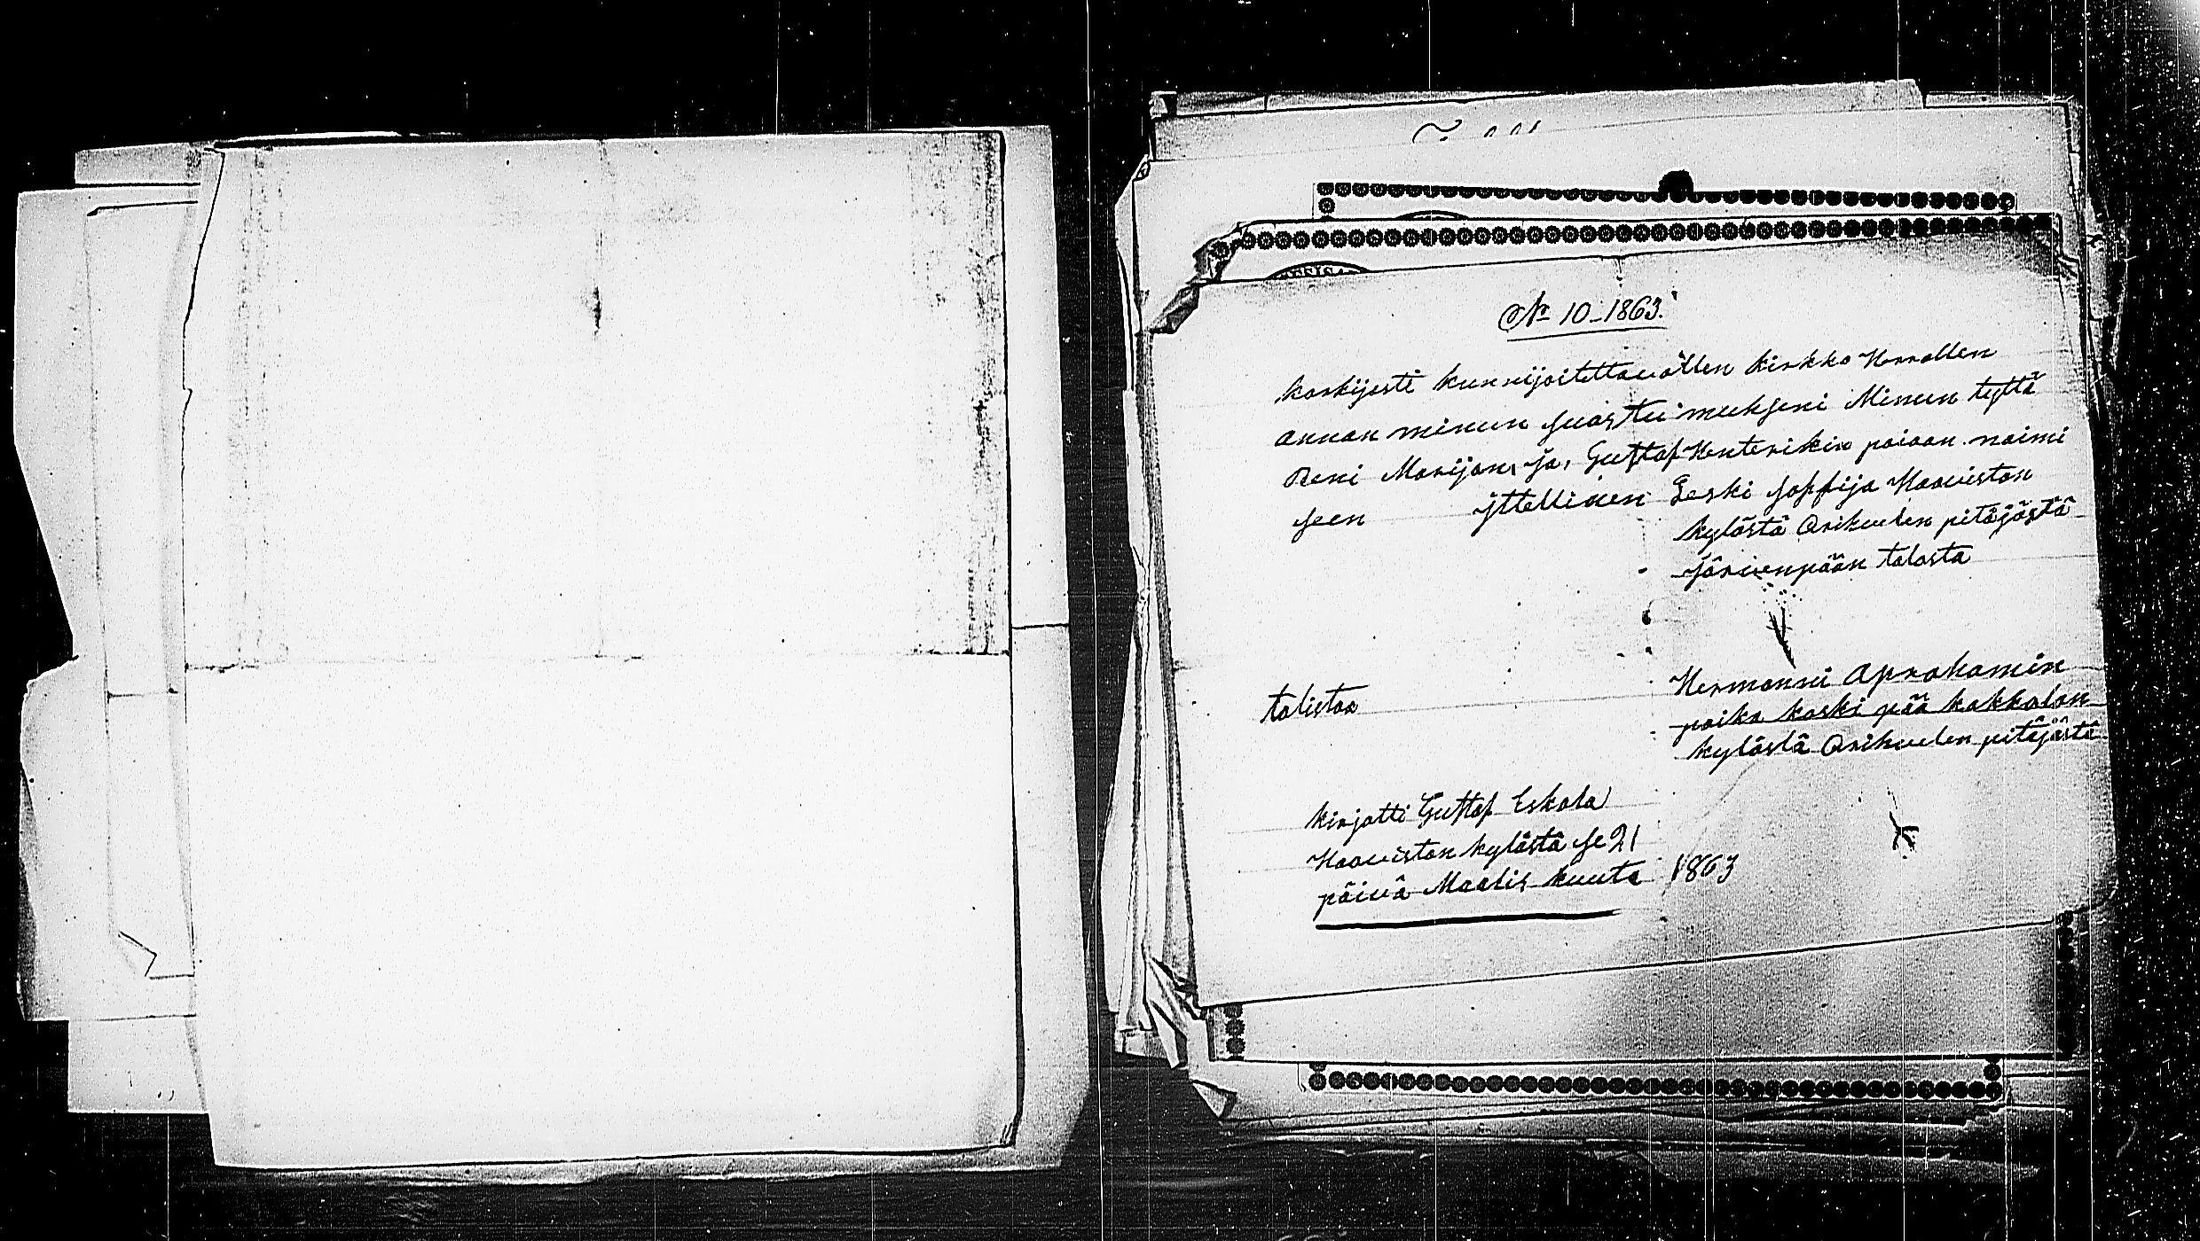 № 10-1863.
korkijesti kunnijoitettavallen kirkko Herrallen
annan minun suostumukseni Minun tyttä
Reni Marijan, ja, Gustaf Henterikin poiaan naimi
seen yttellinen Leski Soffija Haaviston
kylästä Orihvelen pitäjästä
Järivenpään talosta
talistaa Hermanni Aprahamin
poika koski pää kakkolan
kylästä Orihvelen pitäjästä
kirjatti Gustaf Eskola
Haaviston kylästä se 21
päivä Maalis kuuta 1863